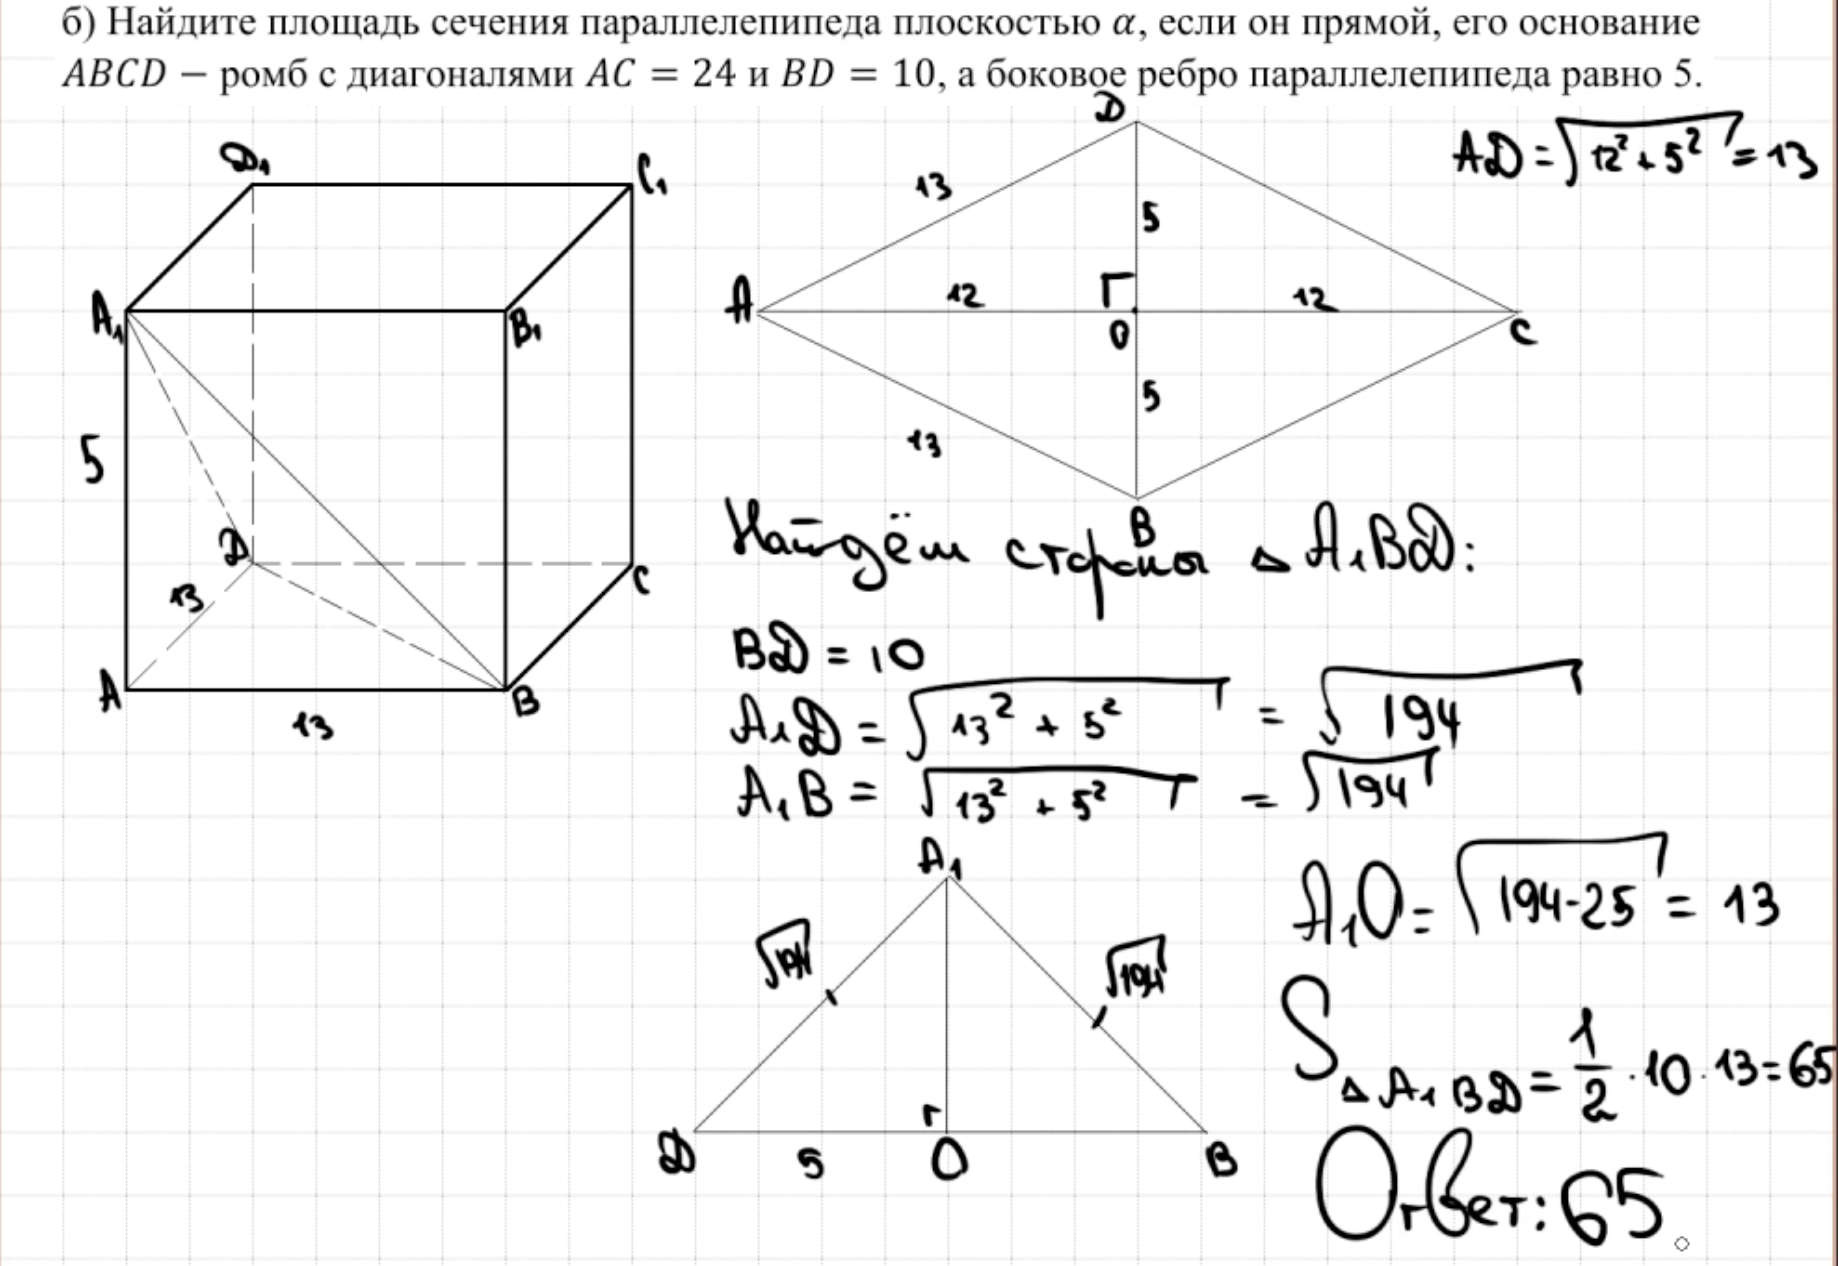 б) Найдите площадь сечения параллелепипеда плоскостью α, если он прямой, его основание
ABCD − ромб с диагоналями AC = 24 и BD = 10, а боковое ребро параллелепипеда равно 5.
D₁
C₁
A₁
B₁
5
D
13
C
A
13
B
D
13
5
A
12
O
12
C
13
5
B
AD = √12² + 5² = 13
Найдём стороны △ A₁BD:
BD = 10
A₁D = √13² + 5² = √194
A₁B = √13² + 5² = √194
A₁
√194
√194
D
5
O
B
A₁O = √194-25 = 13
S △ A₁BD = 1/2 · 10 · 13 = 65
Ответ: 65.